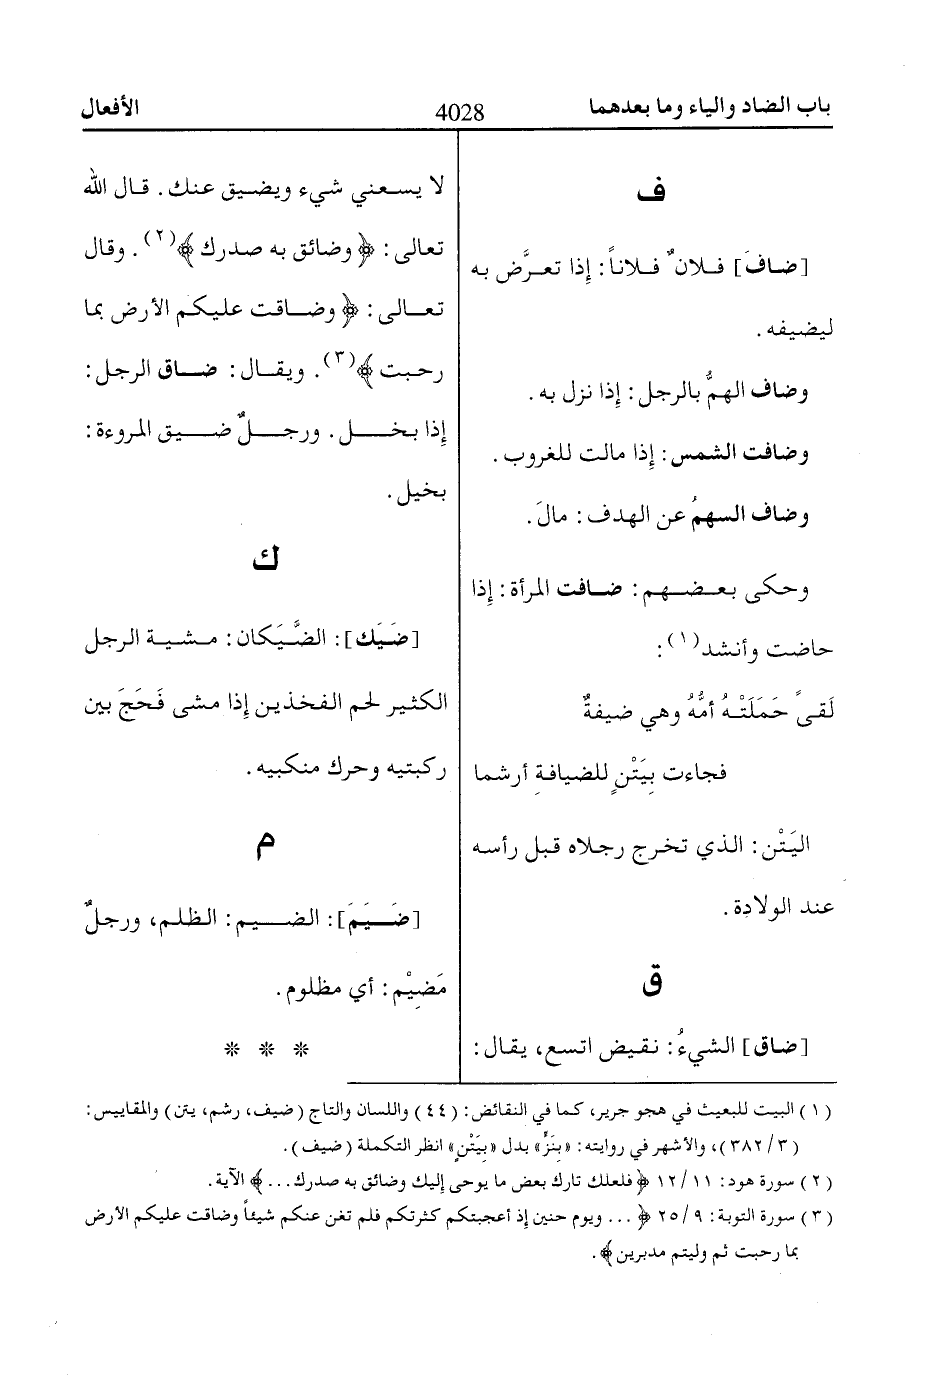 باب الضاد والياء وما بعدهما 4028 الأفعال
ف
[ضافَ] فـلانٌ فـلاناً: إذا تعـرَّض به
ليضيفه.
وضاف الهمُّ بالرجل: إذا نزل به.
وضافت الشمس: إذا مالت للغروب.
وضاف السهمُ عن الهدف: مالَ.
وحكى بعـضـهم: ضـافت المرأة: إذا
حاضت وأنشد(١):
لَقىً حَمَلَتْـهُ أمُّهُ وهي ضيفةٌ
فجاءت بِيَتْنٍ للضيافة أرشما
اليَتْن: الذي تخرج رجلاه قبل رأسه
عند الولادة.
ق
[ضاق] الشيءُ: نقيض اتسع، يقال:
لا يسـعني شيء ويضيق عنك. قـال الله
تعالى: ﴿وضائق به صدرك﴾(٢). وقال
تعـالى: ﴿وضـاقت عليكم الأرض بما
رحبت﴾(٣). ويقـال: ضـاق الرجل:
إذا بخـل. ورجـلٌ ضـيق المروءة:
بخيل.
ك
[ضَيَك]: الضَّيَكان: مـشـية الرجل
الكثير لحم الفخذين إذا مشى فَحَجَ بين
ركبتيه وحرك منكبيه.
م
[ضَـيَمَ]: الضـيم: الظلم، ورجلٌ
مَضِيْم: أي مظلوم.
* * *
(١) البيت للبعيث في هجو جرير، كما في النقائض: (٤٤) واللسان والتاج (ضيف، رشم، يتن) والمقاييس:
(٣/ ٣٨٢)، والأشهر في روايته: «بِنَزٍّ» بدل «بِيَتْنٍ» انظر التكملة (ضيف).
(٢) سورة هود: ١١/ ١٢ ﴿فلعلك تارك بعض ما يوحى إليك وضائق به صدرك...﴾ الآية.
(٣) سورة التوبة: ٩/ ٢٥ ﴿... ويوم حنين إذ أعجبتكم كثرتكم فلم تغن عنكم شيئاً وضاقت عليكم الأرض
بما رحبت ثم وليتم مدبرين﴾.